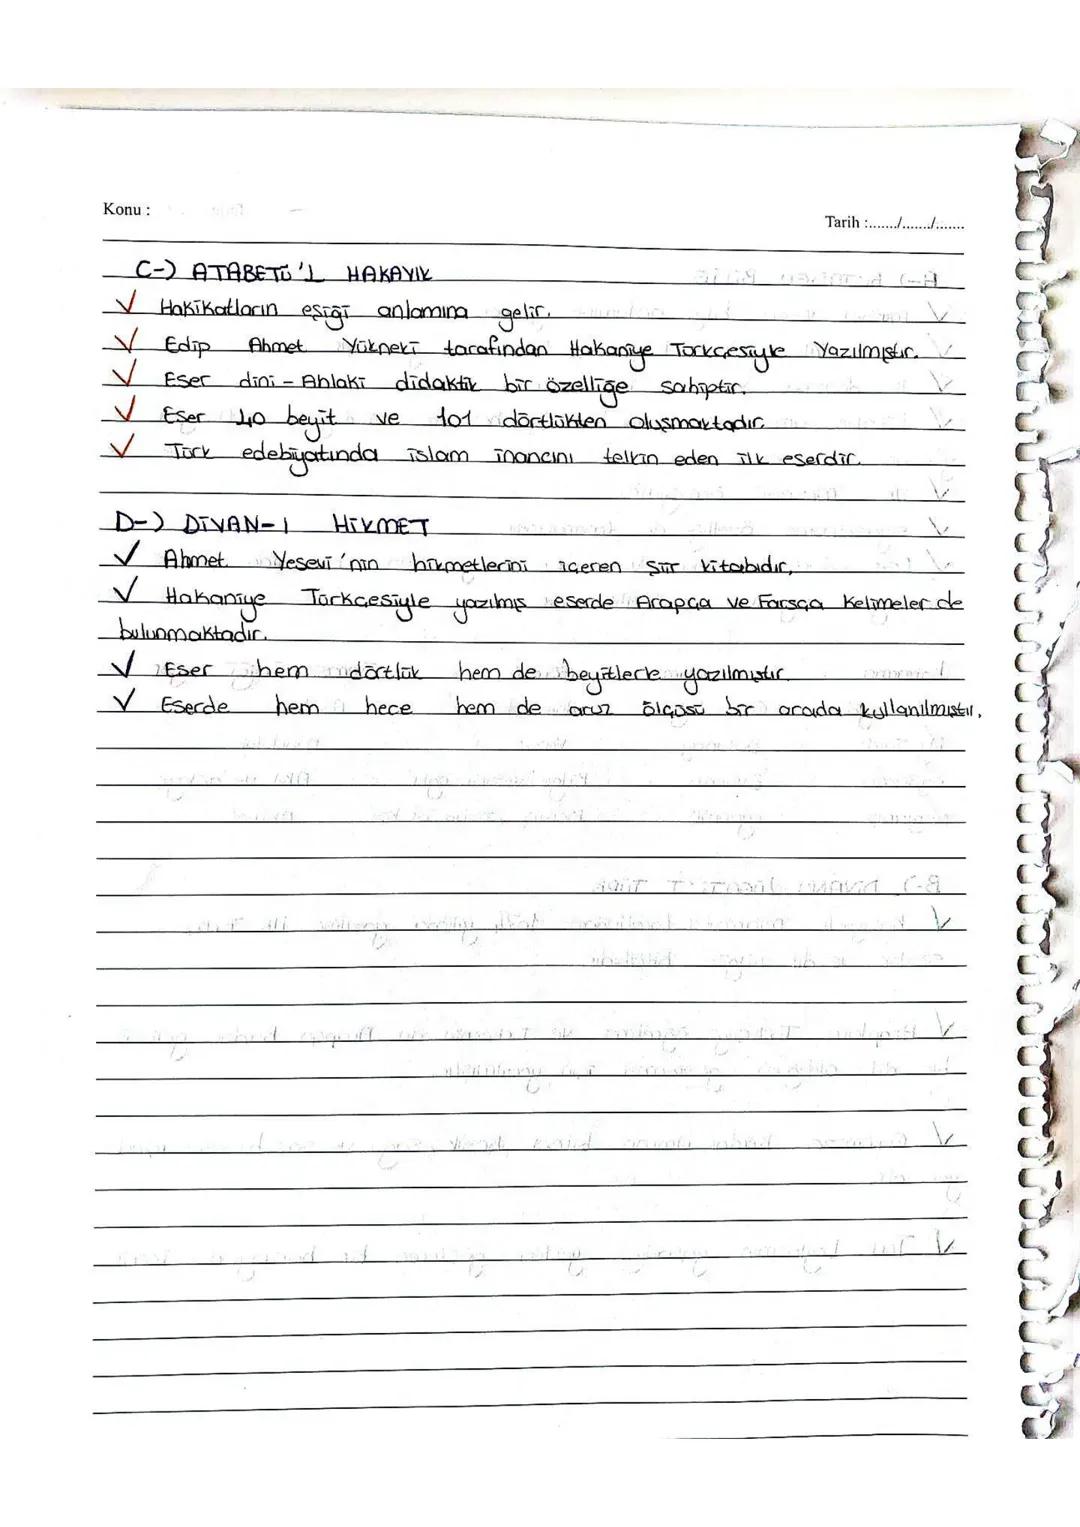 Konu :
Tarih :......./......./.......
C-) ATABETÜ'L HAKAYIK
✓ Hakikatların eşiği anlamına gelir.
✓ Edip Ahmet Yükneki tarafından Hakaniye Türkçesiyle Yazılmıştır.
✓ Eser dini - Ahlaki didaktik bir özelliğe sahiptir.
✓ Eser 40 beyit ve 101 dörtlükten oluşmaktadır.
✓ Türk edebiyatında islam inancını telkin eden ilk eserdir.
D-) DİVAN-I HİKMET
✓ Ahmet Yesevi'nin hikmetlerini içeren şiir kitabıdır.
✓ Hakaniye Türkçesiyle yazılmış eserde Arapça ve Farsça Kelimeler de
bulunmaktadır.
✓ Eser hem dörtlük hem de beyitlerle yazılmıştır.
✓ Eserde hem hece hem de aruz ölçüsü bir arada kullanılmıştır.